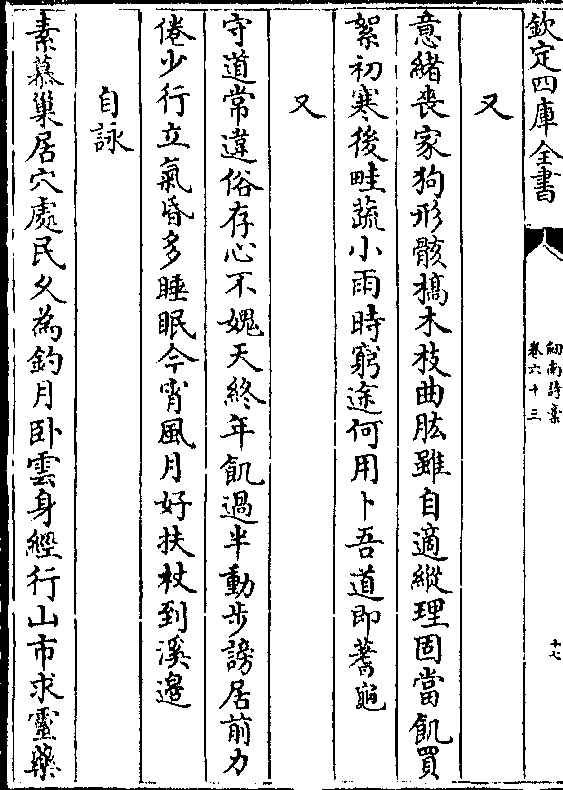 欽定四庫全書
劒南詩稾
卷六十三
十七
又
意緒喪家狗形骸槁木枝曲肱雖自適縱理固當飢買
絮初寒後畦蔬小雨時窮途何用卜吾道即蓍龜
又
守道常違俗存心不媿天終年飢過半動步謗居前力
倦少行立氣昏多睡眠今宵風月好扶杖到溪邊
自詠
素慕巢居穴處民久為釣月卧雲身經行山市求靈藥